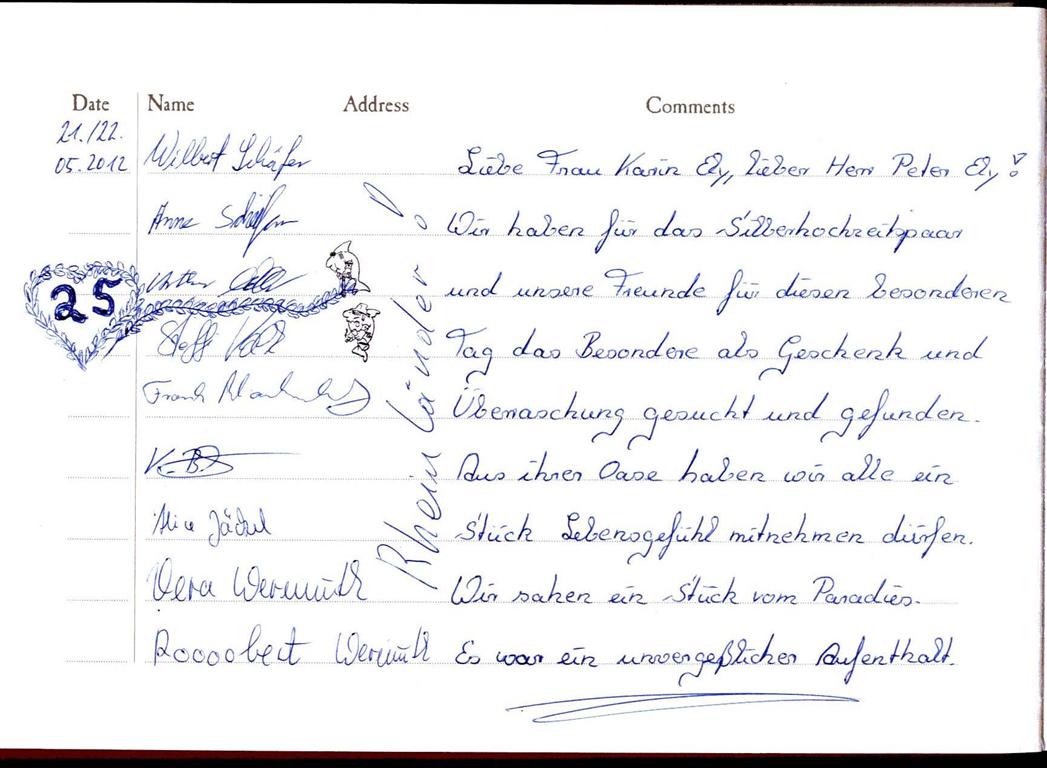 Date Name Address Comments
21./22.
05.2012
Wilbert Schäfer
Liebe Frau Karin Ely, lieber Herr Peter Ely!
Anne Schäfer
Wir haben für das Silberhochzeitspaar
25
und unsere Freunde für diesen besonderen
Steffi
Tag das Besondere als Geschenk und
Frank
Überraschung gesucht und gefunden.
Aus ihrer Oase haben wir alle ein
Alice Jäckel
Stück Lebensgefühl mitnehmen dürfen.
Vera Wermuth
Wir sahen ein Stück vom Paradies.
Roooobert Wermuth
Es war ein unvergeßlicher Aufenthalt.
Rheinländer!